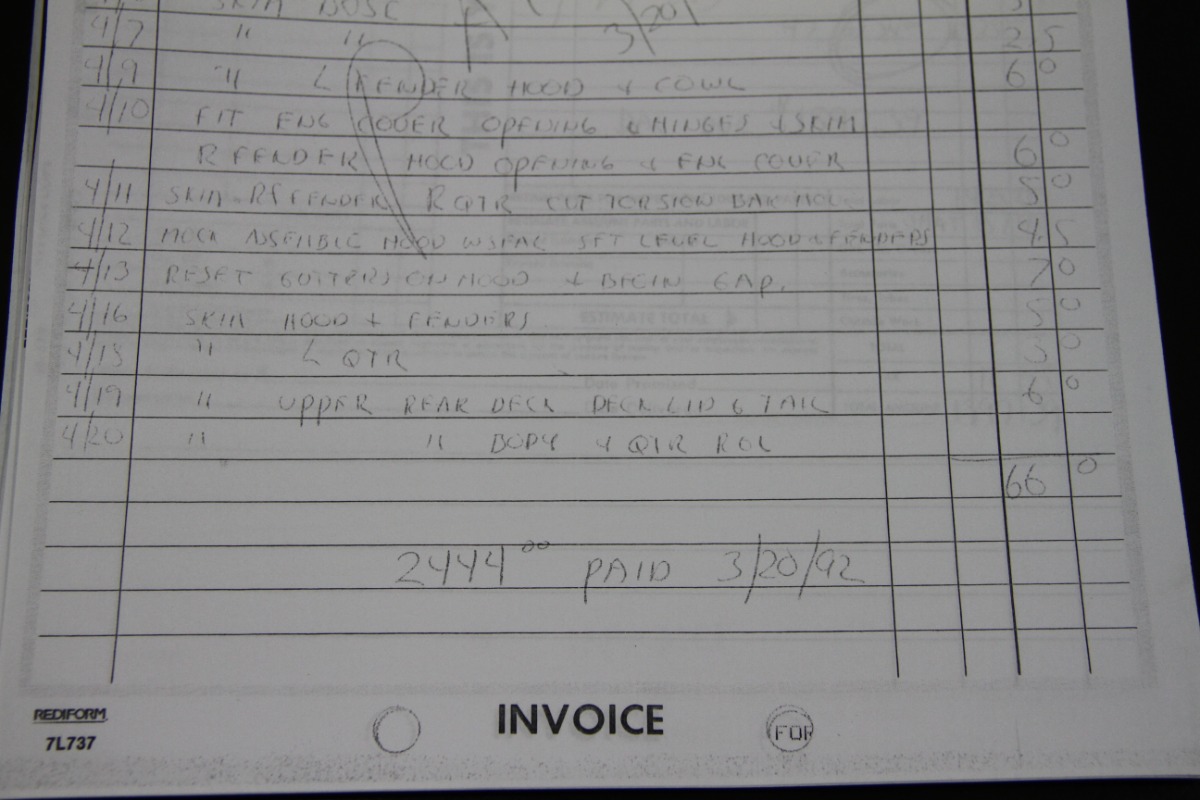 SKIM NOSE
3/20/
4/7 " " 2 5
4/9 " L FENDER HOOD & COWL 6 0
4/10 FIT ENG COVER OPENING & HINGES & SKIM
R FENDER HOOD OPENING & ENG COVER 6 0
4/11 SKIM R FENDER R QTR CUT TORSION BAR 5 0
4/12 MOCK ASSEMBLE HOOD SET LEVEL HOOD & FENDERS 4.5
4/13 RESET GUTTERS ON HOOD & BEGIN GAP. 7 0
4/16 SKIM HOOD & FENDERS 5 0
" L QTR 3 0
4/19 " UPPER REAR DECK DECK LID & TAIL 6 0
4/20 " " BODY & QTR
66 0
2444 00 PAID 3/20/92
REDIFORM
7L737
INVOICE
FOR